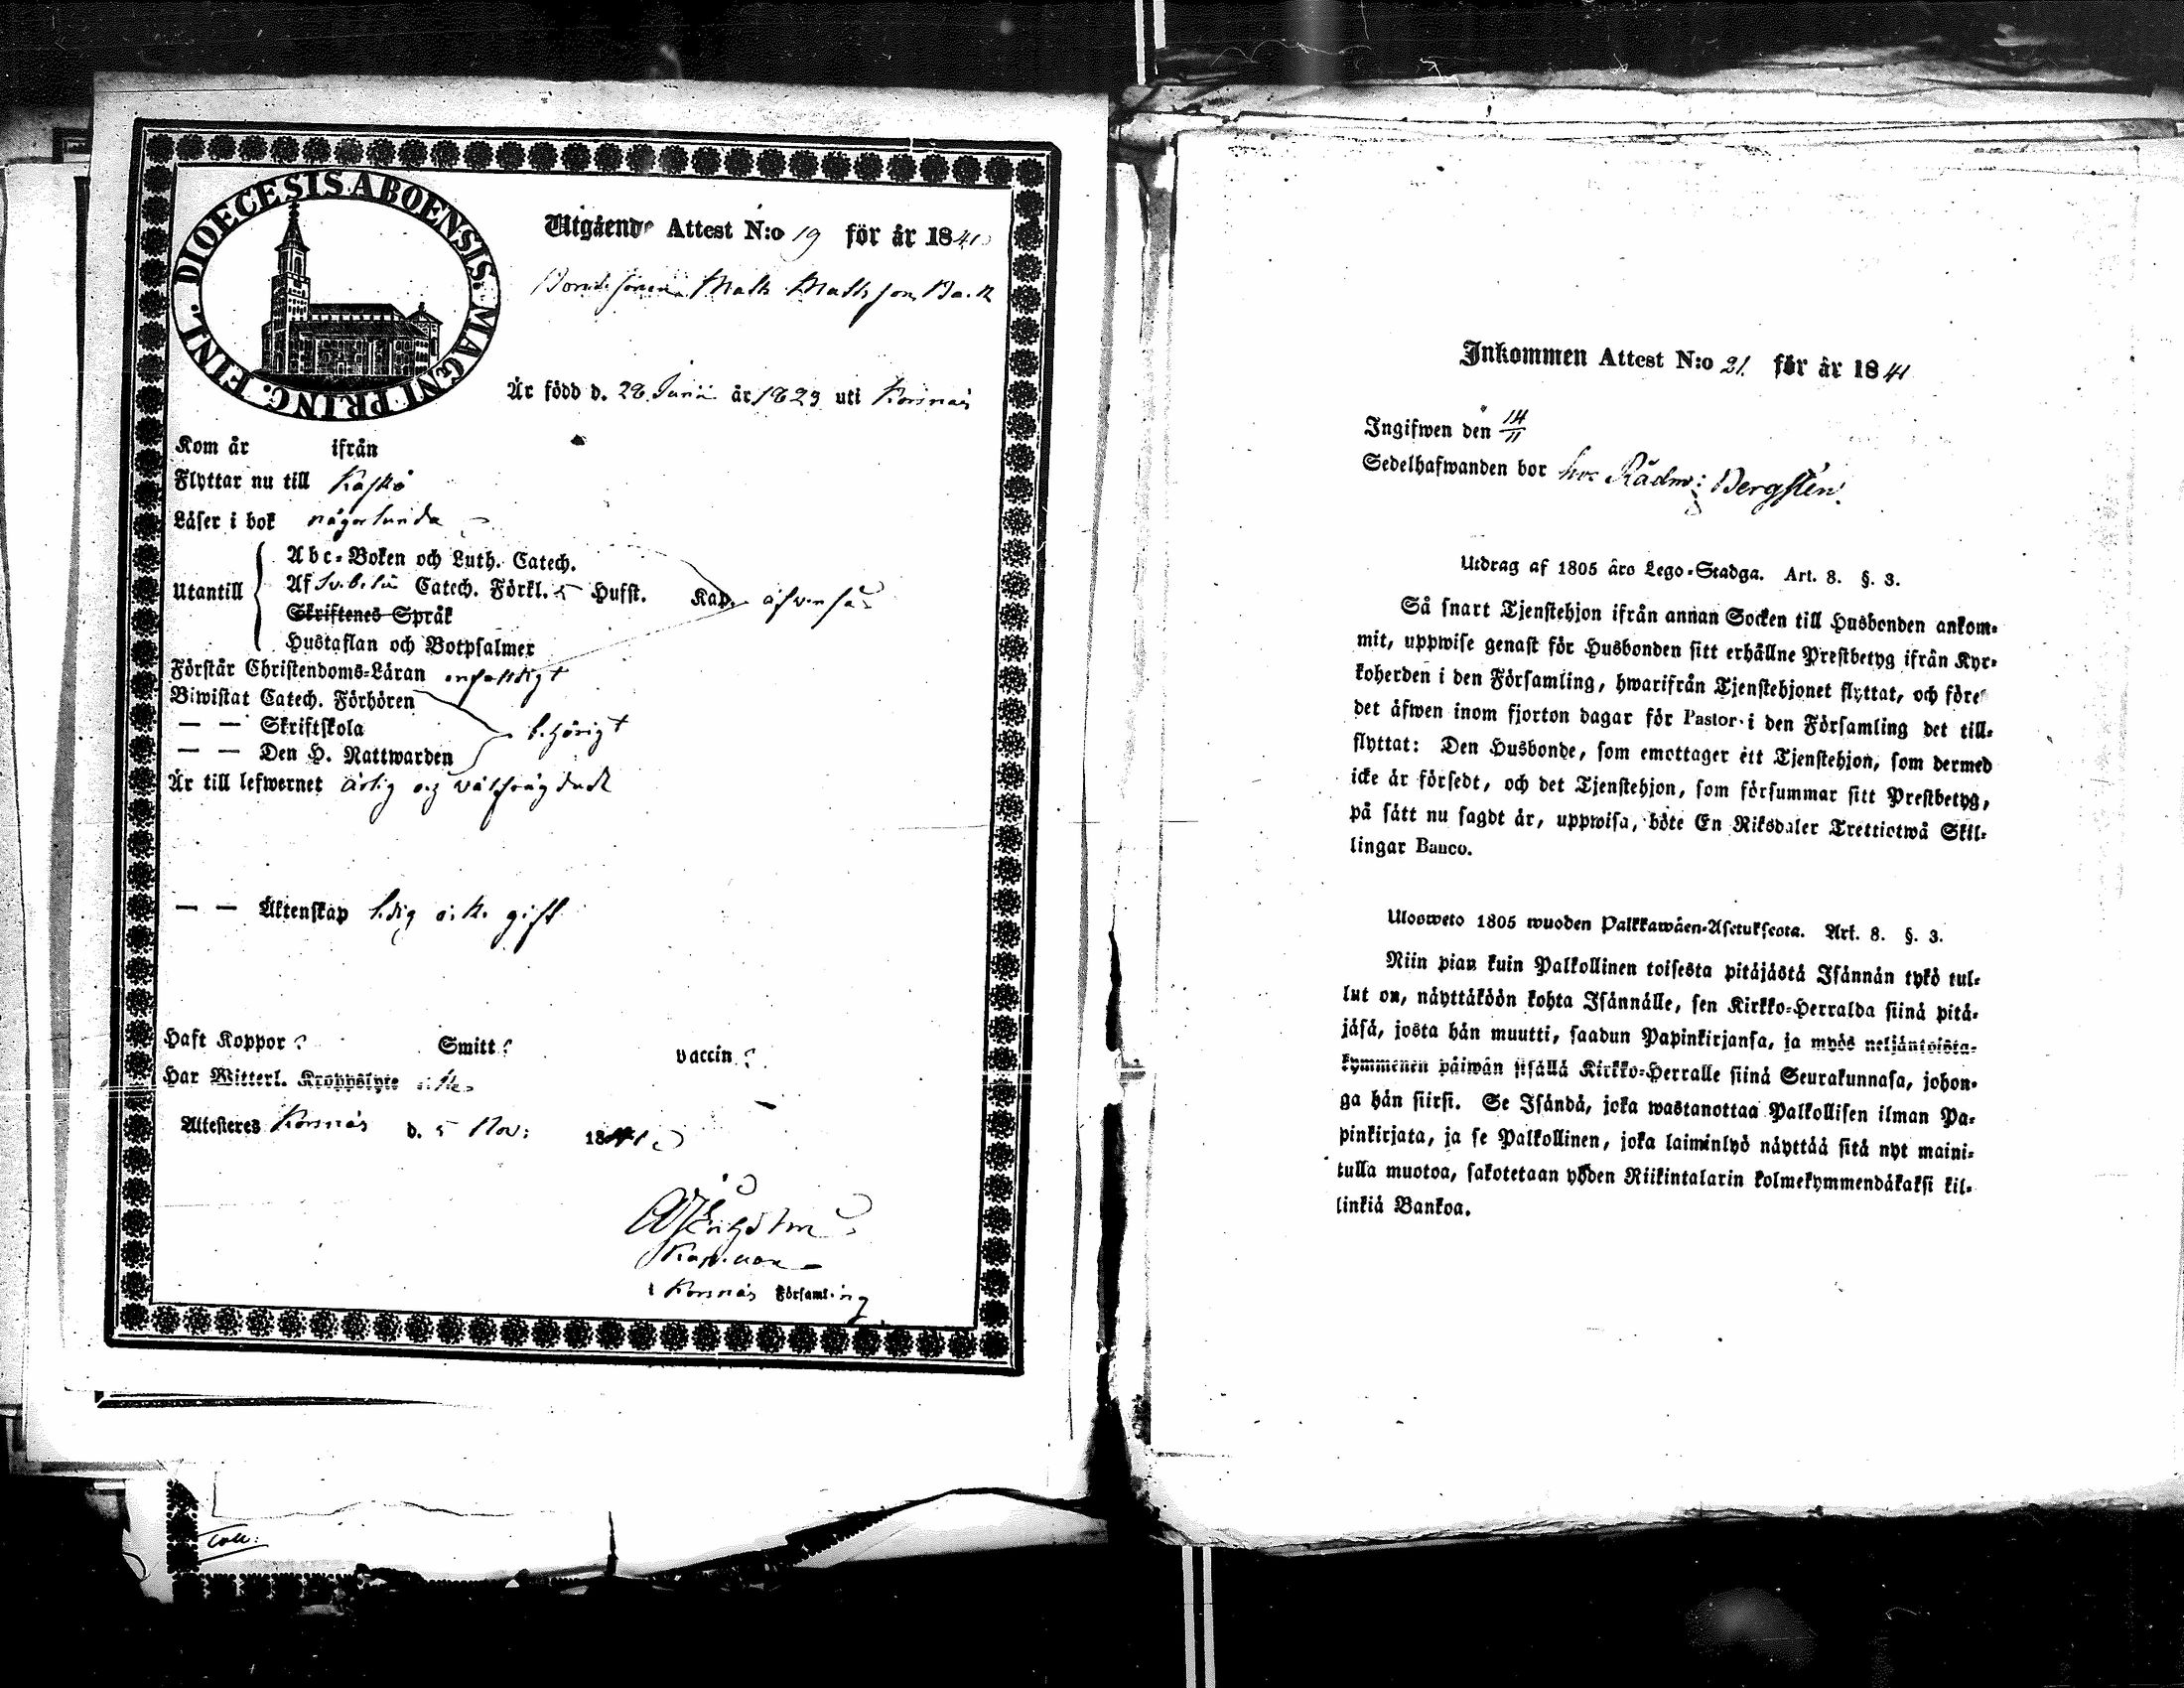 DIOECESIS ABOENSIS. MAGNI PRINC. FINL.
Utgående Attest N:o 19 för år 1841
Bondesonen Matts Mattsson Back
Är född d. 28 Junii år 1823 uti Korsnäs
Kom år ifrån
Flyttar nu till Kaskö
Läser i bok någorlunda
Abc-Boken och Luth. Catech.
Utantill Af Svebelii Catech. Förkl. 5 Hufst. Kap. äfvenså
Skriftenes Språk
Hustaflan och Botpsalmer
Förstår Christendoms-Läran enfaldigt
Biwistat Catech. Förhören
— — Skriftskola behörigt
— — Den H. Nattwarden
Är till lefwernet ärlig och välfrägdade
— — Äktenskap ledig icke gift
Haft Koppor? Smitt? vaccin?
Har Witterl. Kroppslyte icke
Attesteres Korsnäs d. 5 Nov: 1841
Kapellan
i Korsnäs Församling
Coll:
Inkommen Attest N:o 21. för år 1841
Ingifwen den 14/11
Sedelhafwanden bor hos Rådm: Bergsten.
Utdrag af 1805 års Lego-Stadga. Art. 8. §. 3.
Så snart Tjenstehjon ifrån annan Socken till Husbonden ankom-
mit, uppwise genast för Husbonden sitt erhållne Prestbetyg ifrån Kyr-
koherden i den Församling, hwarifrån Tjenstehjonet flyttat, och före
det äfwen inom fjorton dagar för Pastor i den Församling det till-
flyttat: Den Husbonde, som emottager ett Tjenstehjon, som dermed
icke är försedt, och det Tjenstehjon, som försummar sitt Prestbetyg,
på sätt nu sagdt är, uppwisa, böte En Riksdaler Trettiotwå Skil-
lingar Banco.
Ulosweto 1805 wuoden Palkkawäen-Asetuksesta. Art. 8. §. 3.
Niin pian kuin Palkollinen toisesta pitäjästä Isännän tykö tul-
lut on, näyttäköön kohta Isännälle, sen Kirkko-Herralda siinä pitä-
jäsä, josta hän muutti, saadun Papinkirjansa, ja myös neljäntoista-
kymmenen päiwän sisällä Kirkko-Herralle siinä Seurakunnasa, johon-
ga hän siirsi. Se Isändä, joka wastanottaa Palkollisen ilman Pa-
pinkirjata, ja se Palkollinen, joka laiminlyö näyttää sitä nyt maini-
tulla muotoa, sakotetaan yhden Riikintalarin kolmekymmendäkaksi kil-
linkiä Bankoa.